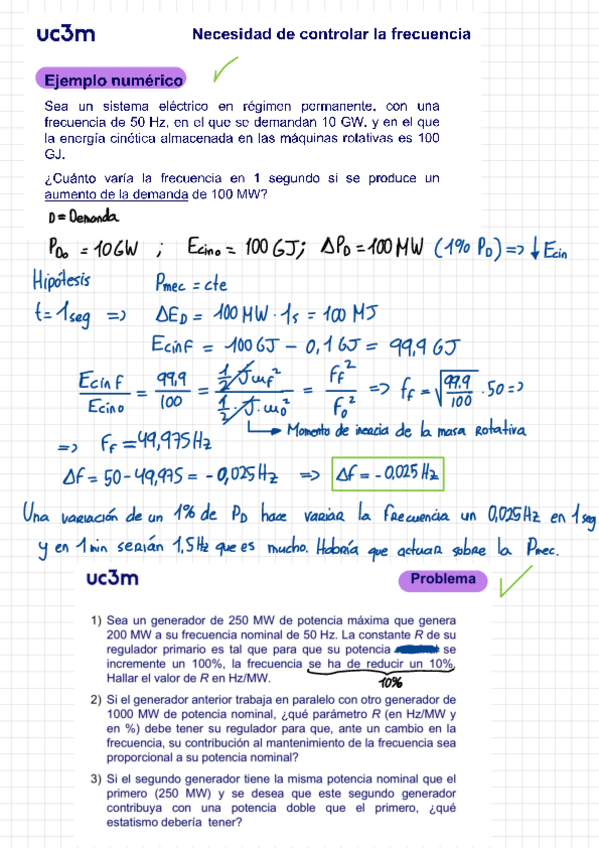 uc3m Necesidad de controlar la frecuencia
Ejemplo numérico
Sea un sistema eléctrico en régimen permanente, con una
frecuencia de 50 Hz, en el que se demandan 10 GW, y en el que
la energía cinética almacenada en las máquinas rotativas es 100
GJ.
¿Cuánto varía la frecuencia en 1 segundo si se produce un
aumento de la demanda de 100 MW?
D = Demanda
P_D0 = 10 GW ; Ecin0 = 100 GJ; ΔP_D = 100 MW (1% P_D) => ↓ Ecin
Hipótesis Pmec = cte
t = 1 seg => ΔE_D = 100 MW · 1s = 100 MJ
Ecinf = 100 GJ - 0,1 GJ = 99,9 GJ
Ecin f / Ecin0 = 99,9 / 100 = 1/2 J ωf² / 1/2 · J · ω0² = Ff² / F0² => fF = √(99,9 / 100) · 50 =>
Momento de inercia de la masa rotativa
=> FF = 49,975 Hz
Δf = 50 - 49,975 = - 0,025 Hz => Δf = - 0,025 Hz
Una variación de un 1% de P_D hace variar la frecuencia un 0,025 Hz en 1 seg
y en 1 min serían 1,5 Hz que es mucho. Habría que actuar sobre la Pmec.
uc3m Problema
1) Sea un generador de 250 MW de potencia máxima que genera
200 MW a su frecuencia nominal de 50 Hz. La constante R de su
regulador primario es tal que para que su potencia se
incremente un 100%, la frecuencia se ha de reducir un 10%.
Hallar el valor de R en Hz/MW.
10%
2) Si el generador anterior trabaja en paralelo con otro generador de
1000 MW de potencia nominal, ¿qué parámetro R (en Hz/MW y
en %) debe tener su regulador para que, ante un cambio en la
frecuencia, su contribución al mantenimiento de la frecuencia sea
proporcional a su potencia nominal?
3) Si el segundo generador tiene la misma potencia nominal que el
primero (250 MW) y se desea que este segundo generador
contribuya con una potencia doble que el primero, ¿qué
estatismo debería tener?